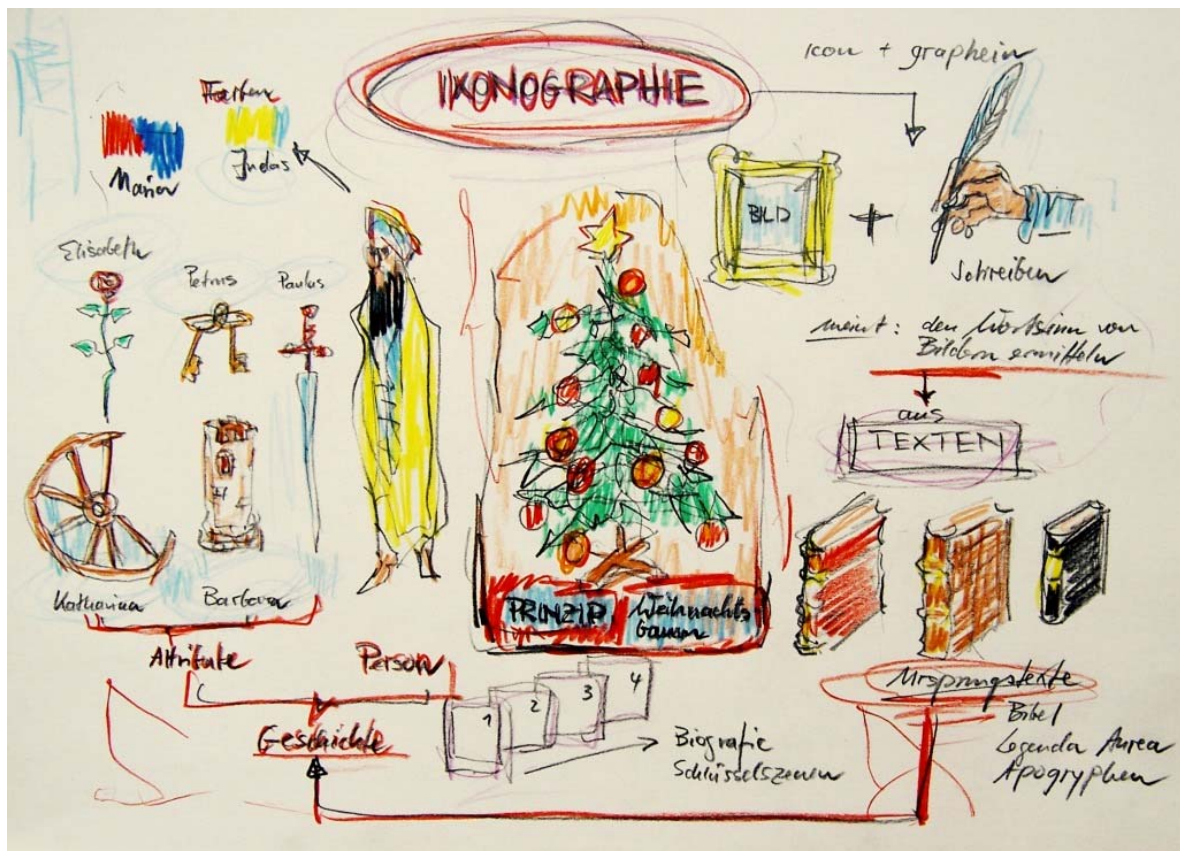 IKONOGRAPHIE
Icon + graphein
Farben
Maria
Judas
Elisabeth
Petrus
Paulus
BILD
+
Schreiben
meint: den Wortsinn von
Bildern ermitteln
aus
TEXTEN
Katharina
Barbara
PRINZIP
Weihnachts-
baum
Attribute
Person
Geschichte
1 2 3 4
Biografie
Schlüsselszenen
Ursprungstexte
Bibel
Legenda Aurea
Apogryphen